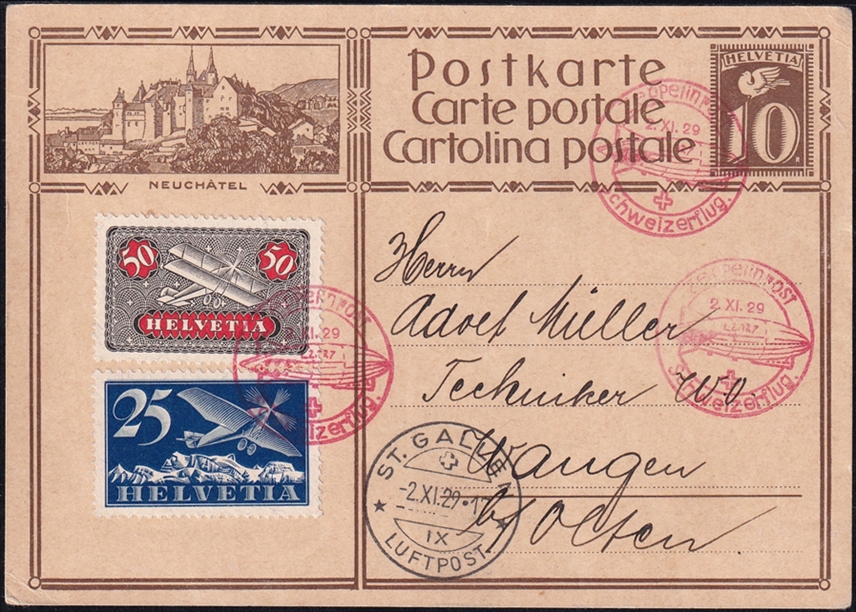 Postkarte
Carte postale
Cartolina postale
HELVETIA
10
NEUCHÂTEL
Zeppelinpost
2. XI. 29
Schweizerflug.
50 50
HELVETIA
Zeppelinpost
2. XI. 29
L.Z.127
Schweizerflug.
25
HELVETIA
Zeppelinpost
2. XI. 29
L.Z.127
Schweizerflug.
Herrn
Adolf Müller
Techniker W.O.
Wangen
b/Olten
ST. GALLEN
-2.XI.29
IX
LUFTPOST.